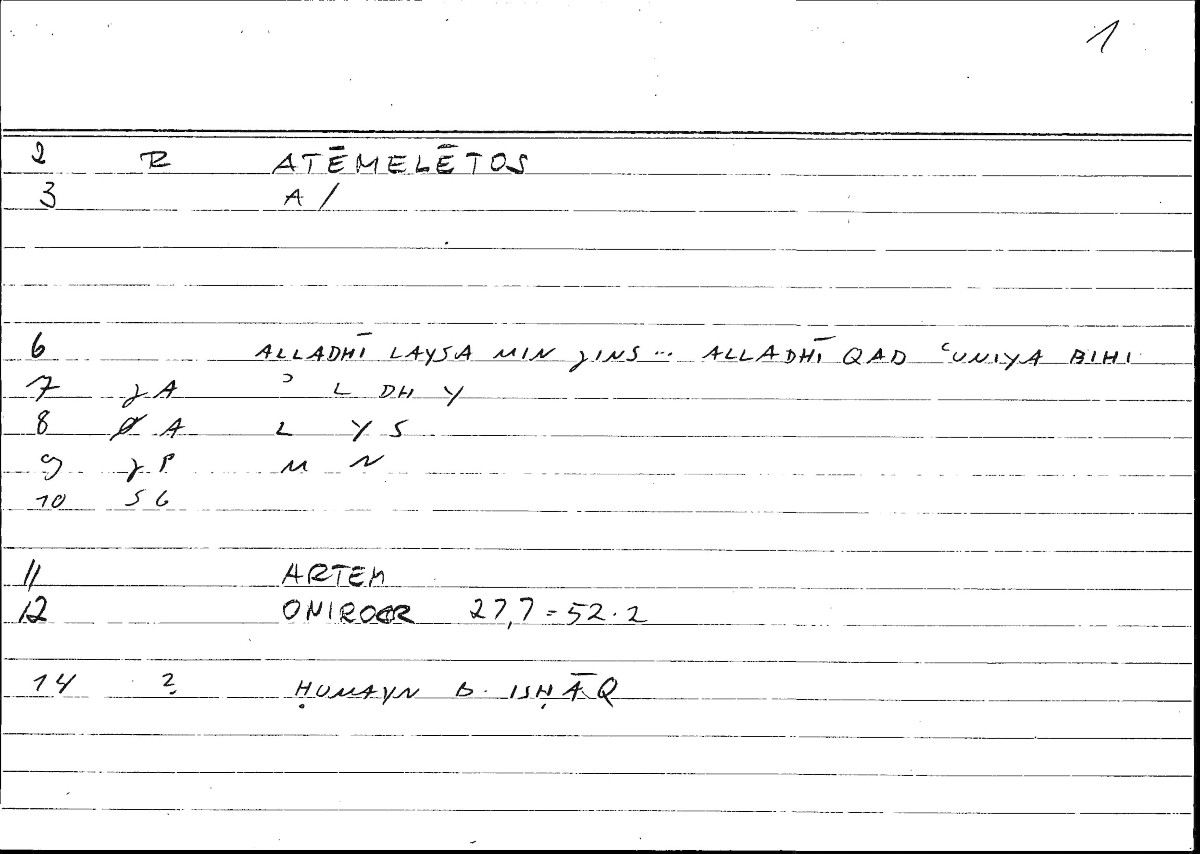 1
2 R ATĒMELĒTOS
3 A /
6 ALLADHĪ LAYSA MIN JINS ... ALLADHĪ QAD ʿUNIYA BIHI
7 JA ʾ L DH Y
8 Ø A L Y S
9 JP M N
10 SG
11 ARTEM
12 ONIROCR 27,7 = 52.2
14 ? ḤUNAYN B. ISḤĀQ